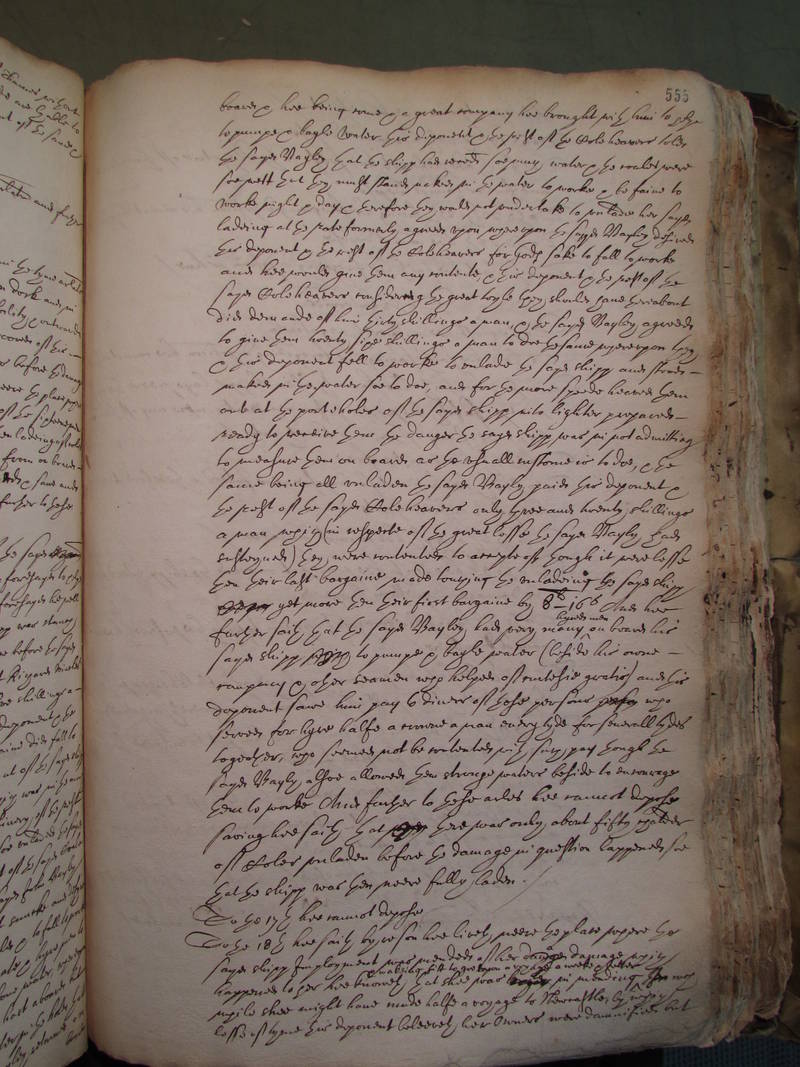 555
board & hee being come & a great company hee brought with him to
to pumpe & bayle water this deponent & the rest of the Coleheavers told
the sayd Bayly that the shipp had received soe much water & the coales were
soe wett that they must stand naked in the water to worke & be faine to
worke night & day & therefore they would not undertake to unlade her sayd
ladeing at the rate formerly agreed upon whereupon the sayd Bayly desired
this deponent & the rest of the Coleheavers for Gods sake to fall to worke
and hee would give them any contente, & this deponent & the rest of the
sayd Coleheavers considering the great toyle they should have thereabout
did demande of him thirty shillings a man, & the sayd Bayly agreed
to give them twenty sixe shillings a man to doe the same whereupon they
& this deponent fell to worke to unlade the sayd shipp and stood
naked in the water soe to doe, and for the more speede heaved them
out at the porte holes of the sayd shipp into lighters prepared
ready to receive them the danger the sayd shipp was in not admitting
to measure them on board as the usuall custome is to doe, & the
same being all unladen the sayd Bayly paid this deponent &
the rest of the sayd Coleheavers only three and twenty shillings
a man which (in respecte of the great losse the sayd Bayly had
susteyned) they were contented to accepte of though it were lesse
then their last bargaine made touching the unladeing the sayd shipp
yet more then their first bargaine by 8s - 16d And hee
further saith that the sayd Bayly had very many hyred men on board his
sayd shipp to pumpe & bayle water (beside his owne
company & other seamen who helped of curtesie gratis) and this
deponent sawe him pay to divers of those persons who
served for hyre halfe a crowne a man every tyde for severall tydes
together, who seemed not be contented with such pay though the
sayd Bayly alsoe allowed them stronge waters beside to encourage
them to worke And further to these articles hee cannot depose
saving hee saith that there was only about fifty chalder
of Coles unladen before the damage in question happened soe
that the shipp was then neere fully laden.
To the 17th hee cannot depose
To the 18th hee saith by reason hee liveth neere the place where the
sayd shipp Imployment was mended of her damage which
happened to her hee knoweth that shee was in mending
& makeing fitt to goe upon a voyage a weeke & better
while shee might have made halfe a voyage to Newcastle, by which
losse of tyme this deponent beleeveth her Owners were damnified but